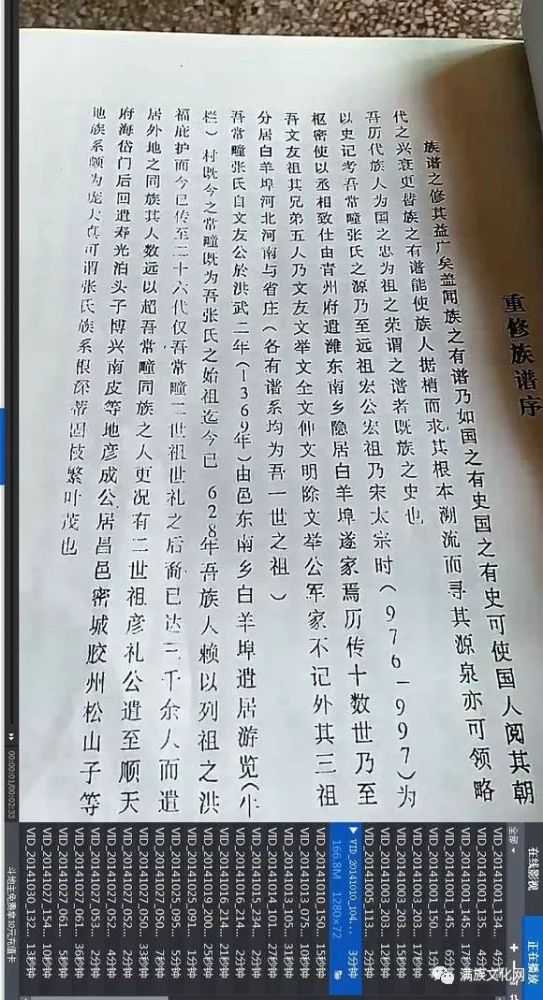 重修族谱序
族谱之修其益广矣盖闻族之有谱乃如国之有史国之有史可使国人阅其朝
代之兴衰更替族之有谱能使族人据梢而求其根本溯流而寻其源泉亦可领略
吾历代族人为国之忠为祖之荣谓之谱者既族之史也
以史记考吾常疃张氏之源乃至远祖宏公宏祖乃宋太宗时(976-997)为
枢密使以丞相致仕由青州府遣潍东南乡隐居白羊埠遂家焉历传十数世乃至
吾文友祖其兄弟五人乃文友文举文全文仲文明除文举公军家不记外其三祖
分居白羊埠河北河南与省庄(各有谱系均为吾一世之祖)
吾常疃张氏自文友公於洪武二年(1369年)由邑东南乡白羊埠遣居游览(牛
栏)村既今之常疃既为吾张氏之始祖迄今已628年吾族人赖以列祖之洪
福庇护而今已传至二十六代仅吾常疃二世祖世礼之后裔已达三千余人而遣
居外地之同族其人数远以超吾常疃同族之人更况有二世祖彦礼公遣至顺天
府海岱门后回遣寿光泊头子博兴南皮等地彦成公居昌邑密城胶州松山子等
地族系颇为庞大真可谓张氏族系根深蒂固枝繁叶茂也
00:00:01/00:02:33
在线影视 正在播放
全部
VID_20141001_134...
VID_20141001_134...
VID_20141001_145...
VID_20141001_145...
VID_20141001_150...
VID_20141003_203...
VID_20141003_203...
VID_20141005_113...
VID_20141010_104... 3分钟
166.8M 1280×72
VID_20141010_150...
VID_20141013_075...
VID_20141013_105...
VID_20141014_101...
VID_20141015_234...
VID_20141016_214...
VID_20141016_214...
VID_20141019_200...
VID_20141025_095...
VID_20141027_050...
VID_20141027_050...
VID_20141027_052...
VID_20141027_053...
VID_20141027_061...
VID_20141027_061...
VID_20141027_154...
VID_20141030_132...
满族文化网